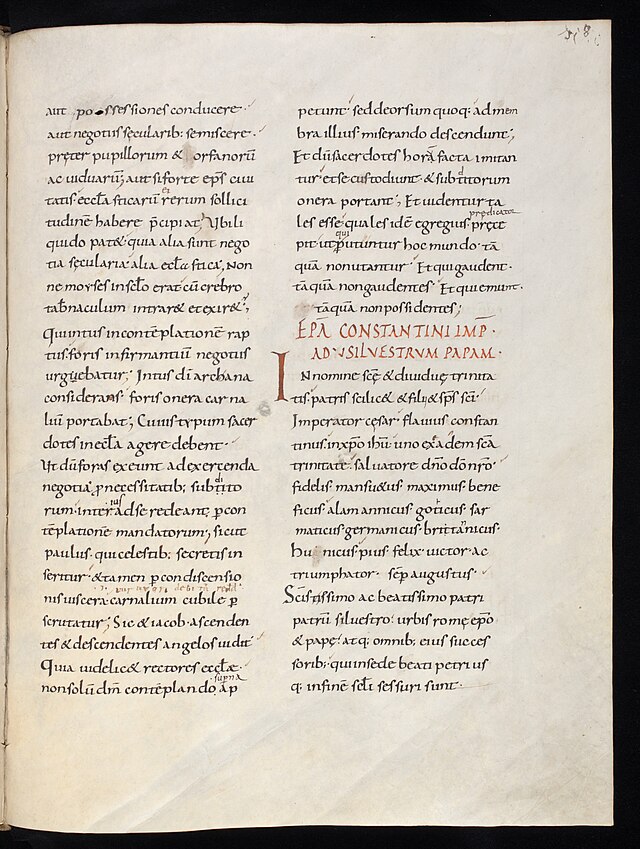 aut possessiones conducere·
aut negotiis sęcularib; se miscere·
pręter pupillorum & orfanorū
ac viduarū; aut si forte ep̄s civi
tatis eccl̄asticarū rerum sollici
tudinē habere p̄cipiat; Ubi li
quido pat& quia alia sunt nego
tia sęcularia alia eccl̄astica; Non
ne moyses in scl̄o erat cū crebro
tab̄naculum intrar& et exir&;
Qui intus in contēplationē rap
tus· foris infirmantiū negotiis
urguebatur; Intus dī archana
considerans· foris onera carna
liū portabat; Cuius typum sacer
dotes in eccl̄a agere debent·
Ut dū foras exeunt ad exercenda
negotia p̄ necessitatib; subditito
rum· interius ad se redeant p̄ con
tēplationē mandatorum; sicut
paulus· qui celestib; secretis in
seritur· & tamen p̄ condiscensio
nis viscera carnalium cubile p̄
scrutatur; Sic & iacob ascenden
tes & descendentes angelos vidit
Quia videlic& rectores eccl̄æ·
non solū dm̄ contēplando ap
supna
petunt· sed deorsum quoq; ad mem
bra illius miserando descendunt;
Et dū sacerdotes hora facta imitan
tur et se custodiunt· & subditorum
onera portant; Et videntur ta
les esse quales idē egregius pręce
predicator
pit ut qui utuntur hoc mundo· tā
quā non utantur· Et qui gaudent·
tāquā non gaudentes· Et qui emunt·
tāquā non possidentes;
EPĀ CONSTANTINI IMP̄·
AD SILVESTRVM PAPAM·
IN nomine sc̄ę & dividuę trinita
tis· patris scilic& & filii & sp̄s sc̄i·
Imperator cęsar· flavius constan
tinus in xpo ihū· uno ex eadem sc̄a
trinitate· salvatore dn̄o dō nr̄o·
fidelis mansu&us maximus bene
ficus· alamannicus goticus· sar
maticus germanicus· brittanicus·
hunicus pius felix· victor· ac
triumphator· sēp augustus·
Sc̄issimo ac beatissimo patri
patrū silvestro· urbis romę ep̄o
& papę· atq; omnib; eius succes
sorib; qui in sede beati petri us
q; in finē scl̄i sessuri sunt·